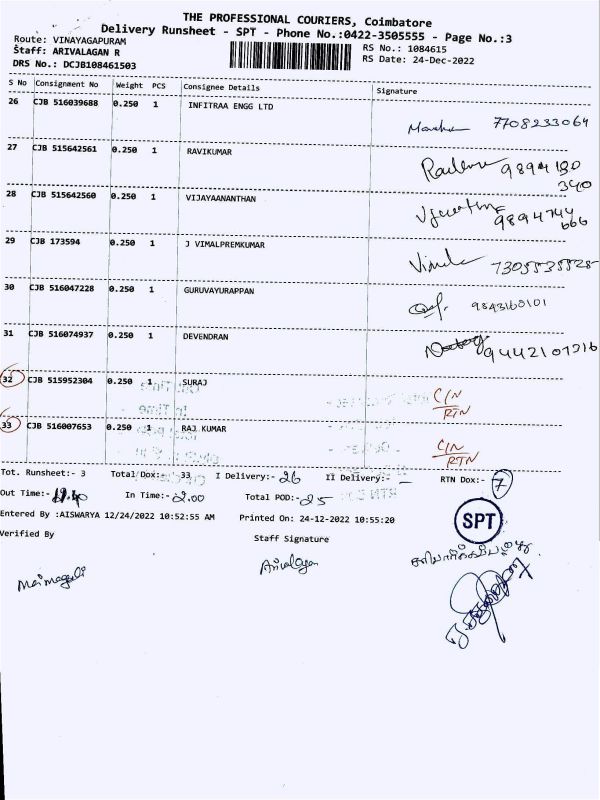 THE PROFESSIONAL COURIERS, Coimbatore
Delivery Runsheet - SPT - Phone No.:0422-3505555 - Page No.:3
Route: VINAYAGAPURAM
Staff: ARIVALAGAN R
DRS No.: DCJB108461503
RS No.: 1084615
RS Date: 24-Dec-2022
S No Consignment No Weight PCS Consignee Details Signature
26 CJB 516039688 0.250 1 INFITRAA ENGG LTD 7708233064
27 CJB 515642561 0.250 1 RAVIKUMAR 9894180
340
28 CJB 515642560 0.250 1 VIJAYAANANTHAN 9894744
666
29 CJB 173594 0.250 1 J VIMALPREMKUMAR 7305535528
30 CJB 516047228 0.250 1 GURUVAYURAPPAN 9843160101
31 CJB 516074937 0.250 1 DEVENDRAN
32 CJB 515952304 0.250 1 SURAJ C/N
RTN
33 CJB 516007653 0.250 1 RAJ KUMAR C/N
RTN
Tot. Runsheet:- 3 Total Dox:- 33 I Delivery:- 26 II Delivery:- - RTN Dox:- 7
Out Time:- In Time:- 2.00 Total POD:- 25
Entered By :AISWARYA 12/24/2022 10:52:55 AM Printed On: 24-12-2022 10:55:20
SPT
Verified By Staff Signature
Arivalagan